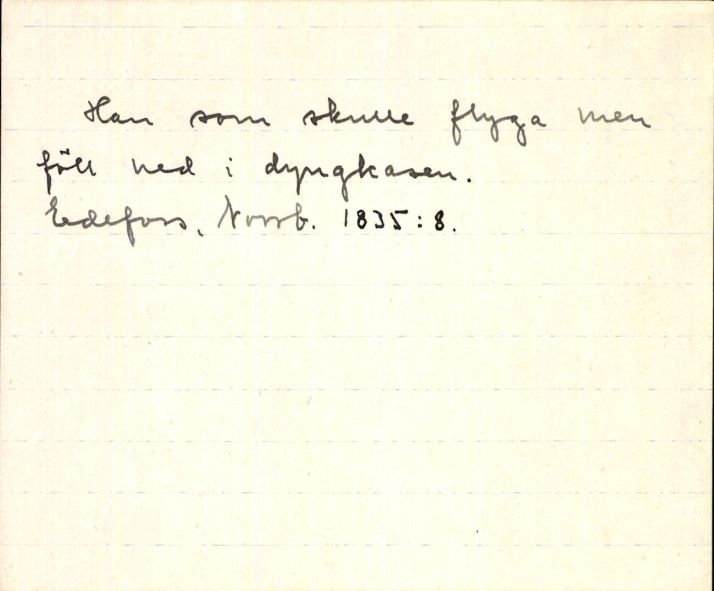 Han som skulle flyga men
föll ned i dyngkasen.
Edefors, Norrb. 1835:8.